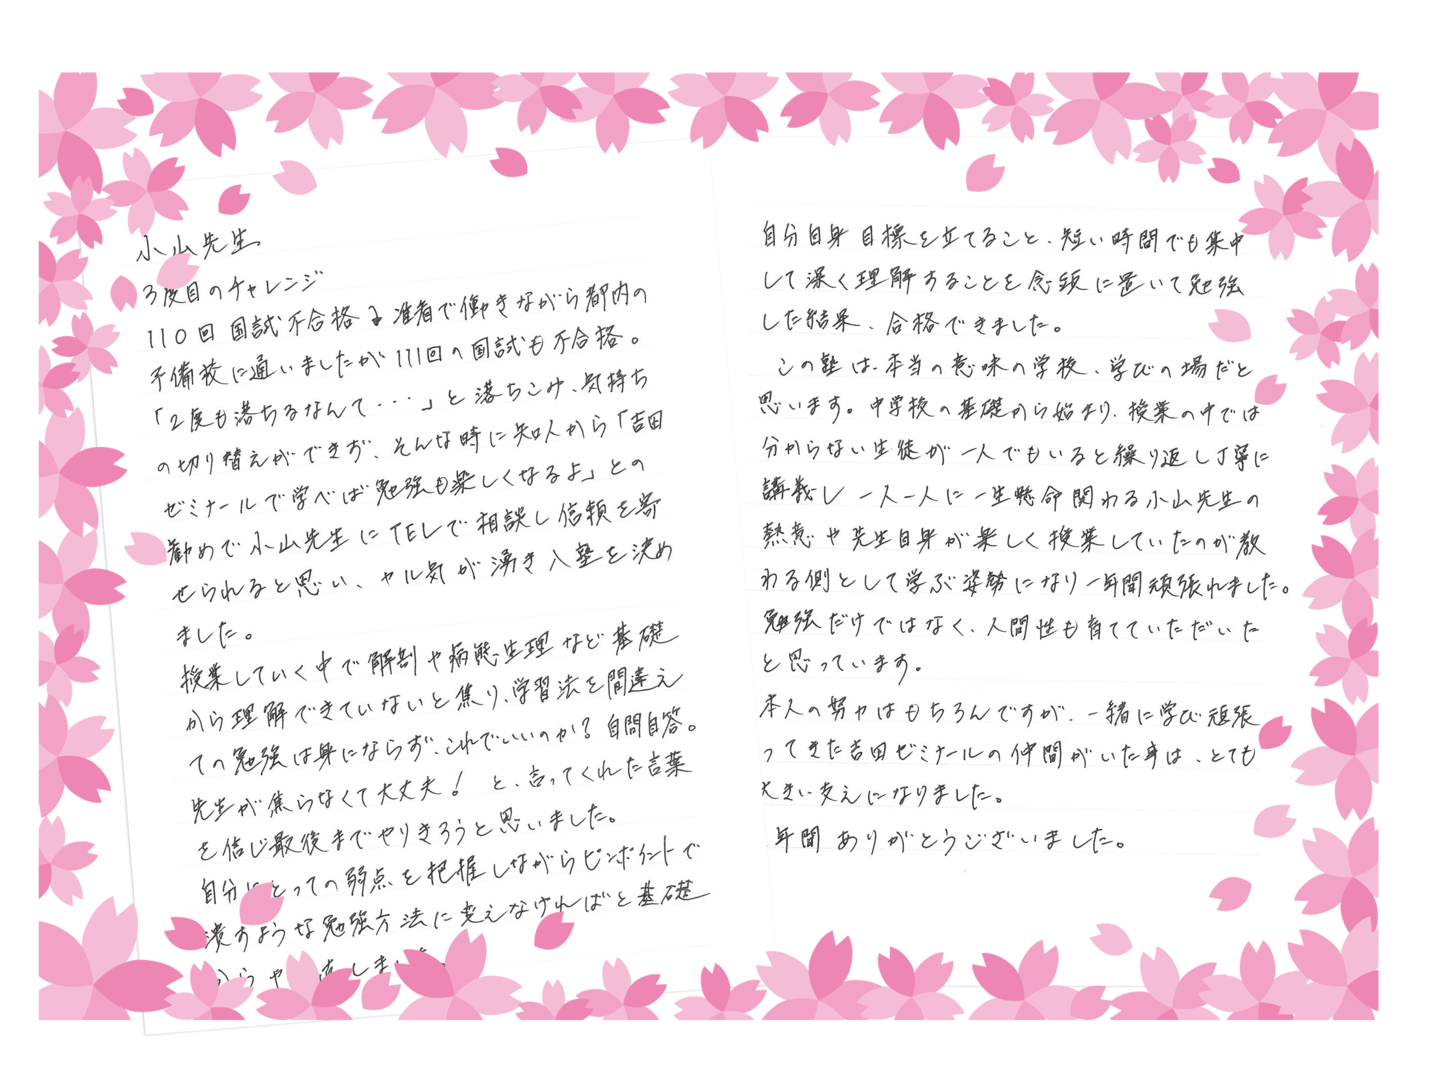 小山先生
3度目のチャレンジ
110回 国試不合格 准看で働きながら都内の
予備校に通いましたが111回の国試も不合格。
「2度も落ちるなんて・・・」と落ちこみ、気持ち
の切り替えができず、そんな時に知人から「吉田
ゼミナールで学べば勉強も楽しくなるよ」との
勧めで小山先生にTELで相談し信頼を寄
せられると思い、ヤル気が湧き入塾を決め
ました。
授業していく中で解剖や病態生理など基礎
から理解できていないと焦り、学習法を間違え
ての勉強は身にならず、これでいいのか?自問自答。
先生が焦らなくて大丈夫! と、言ってくれた言葉
を信じ最後までやりきろうと思いました。
自分にとっての弱点を把握しながらピンポイントで
潰すような勉強方法に変えなければと基礎
からや 直しました。
自分自身 目標を立てること、短い時間でも集中
して深く理解することを念頭に置いて勉強
した結果、合格できました。
この塾は、本当の意味の学校、学びの場だと
思います。中学校の基礎から始まり、授業の中では
分からない生徒が一人でもいると繰り返し丁寧に
講義し 一人一人に一生懸命関わる小山先生の
熱意や先生自身が楽しく授業していたのが教
わる側として学ぶ姿勢になり一年間頑張れました。
勉強だけではなく、人間性も育てていただいた
と思っています。
本人の努力はもちろんですが、一緒に学び頑張
ってきた吉田ゼミナールの仲間がいた事は、とても
大きい支えになりました。
年間 ありがとうございました。